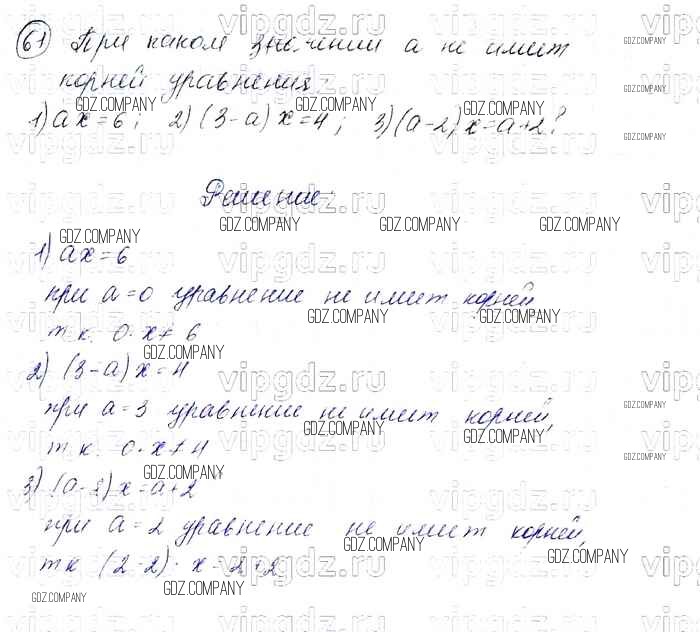 61 При каком значении а не имеет
корней уравнения
1) ax = 6; 2) (3-a) x = 4; 3) (a-2) x = a+2?
Решение:
1) ax = 6
при a = 0 уравнение не имеет корней
т.к. 0·x ≠ 6
2) (3-a) x = 4
при a = 3 уравнение не имеет корней,
т.к. 0·x ≠ 4
3) (a-2) x = a+2
при a = 2 уравнение не имеет корней,
тк (2-2)· x = 2+2
vipgdz.ru
GDZ.COMPANY